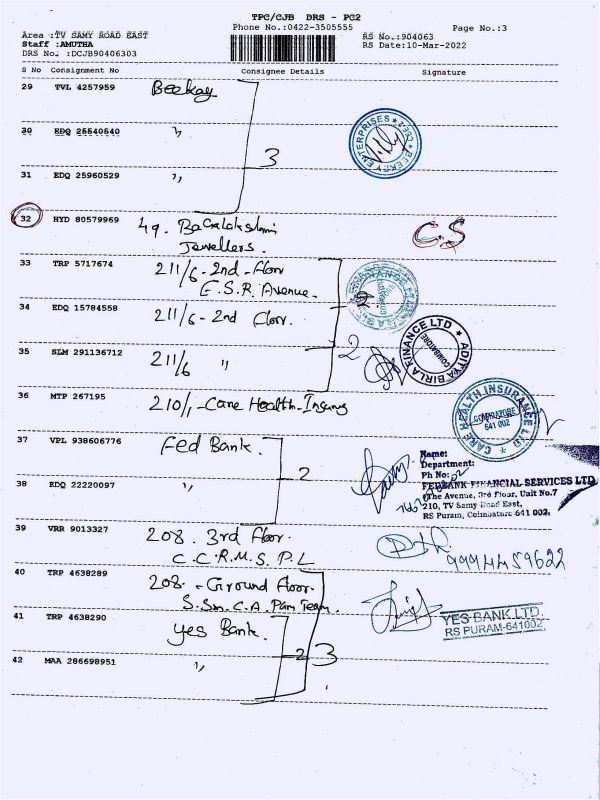 TPC/CJB DRS - PC2
Phone No.:0422-3505555
Page No.:3
Area :TV SAMY ROAD EAST
Staff :AMUTHA
DRS No. :DCJB90406303
RS No.:904063
RS Date:10-Mar-2022
S No Consignment No Consignee Details Signature
29 TVL 4257959 Beekay
30 EDQ 25540540 "
31 EDQ 25960529 "
3
BEEKEY ENTERPRISES
32 HYD 80579969 49.
Jewellers.
C.S
33 TRP 5717674 211/6-2nd-floor
E.S.R. Avenue.
34 EDQ 15784558 211/6-2nd Floor.
35 SLM 291136712 211/6 "
2
ADITYA BIRLA FINANCE LTD
COIMBATORE
36 MTP 267195 210/1-Care Health-Insurng
CARE HEALTH INSURANCE LTD
COIMBATORE
641 002
37 VPL 938606776 Fed Bank.
38 EDQ 22220097 "
2
Name:
Department:
Ph No:
FEDBANK FINANCIAL SERVICES LTD
The Avenue, 3rd Floor, Unit No.7
210, TV Samy Road East,
RS Puram, Coimbatore 641 002.
39 VRR 9013327 208. 3rd floor.
C.C.R.M.S.P.L
9994459622
40 TRP 4638289 208.-Ground floor.
S.Sm.C.A. Pam Team.
41 TRP 4638290 Yes Bank.
42 MAA 286698951 "
2
3
YES BANK LTD.
RS PURAM-641002